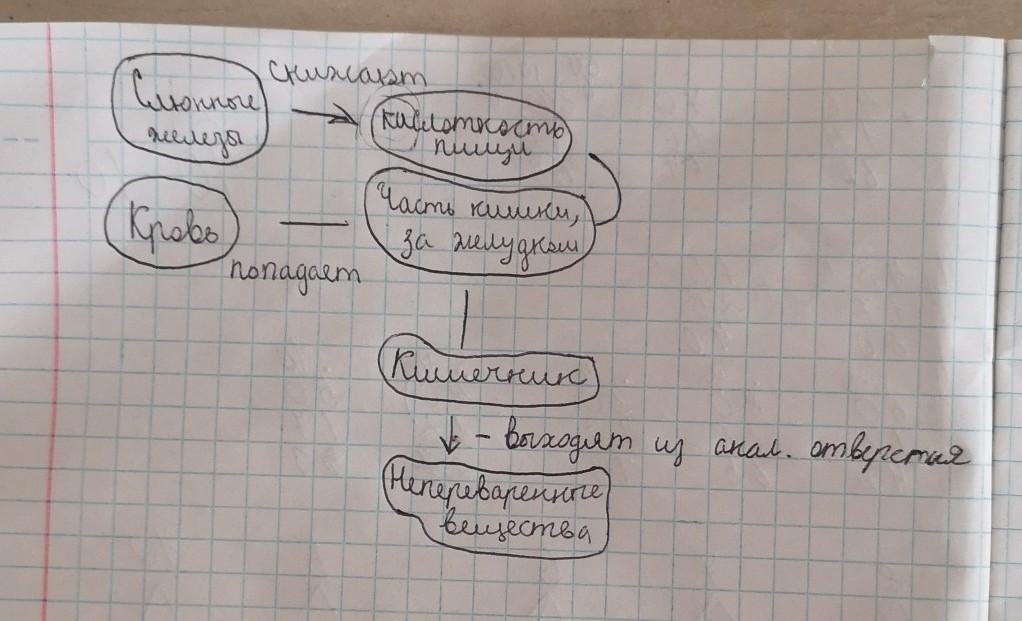 снижают
Слюнные
железы
кислотность
пищи
Часть кишки,
за желудком
Кровь
попадает
Кишечник
- выходят из анал. отверстия
Непереваренные
вещества